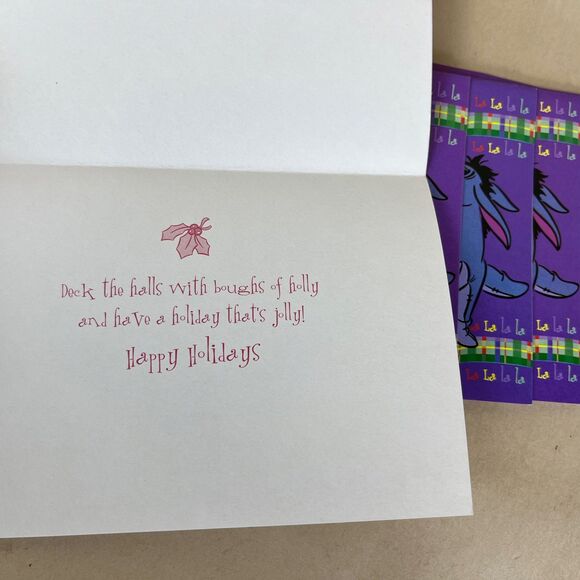 Deck the halls with boughs of holly
and have a holiday that's jolly!
Happy Holidays
La la
La La la la
La la la
La la
La La la la
La la la
La la
La La la la
La la la
La
La La la la
La la la